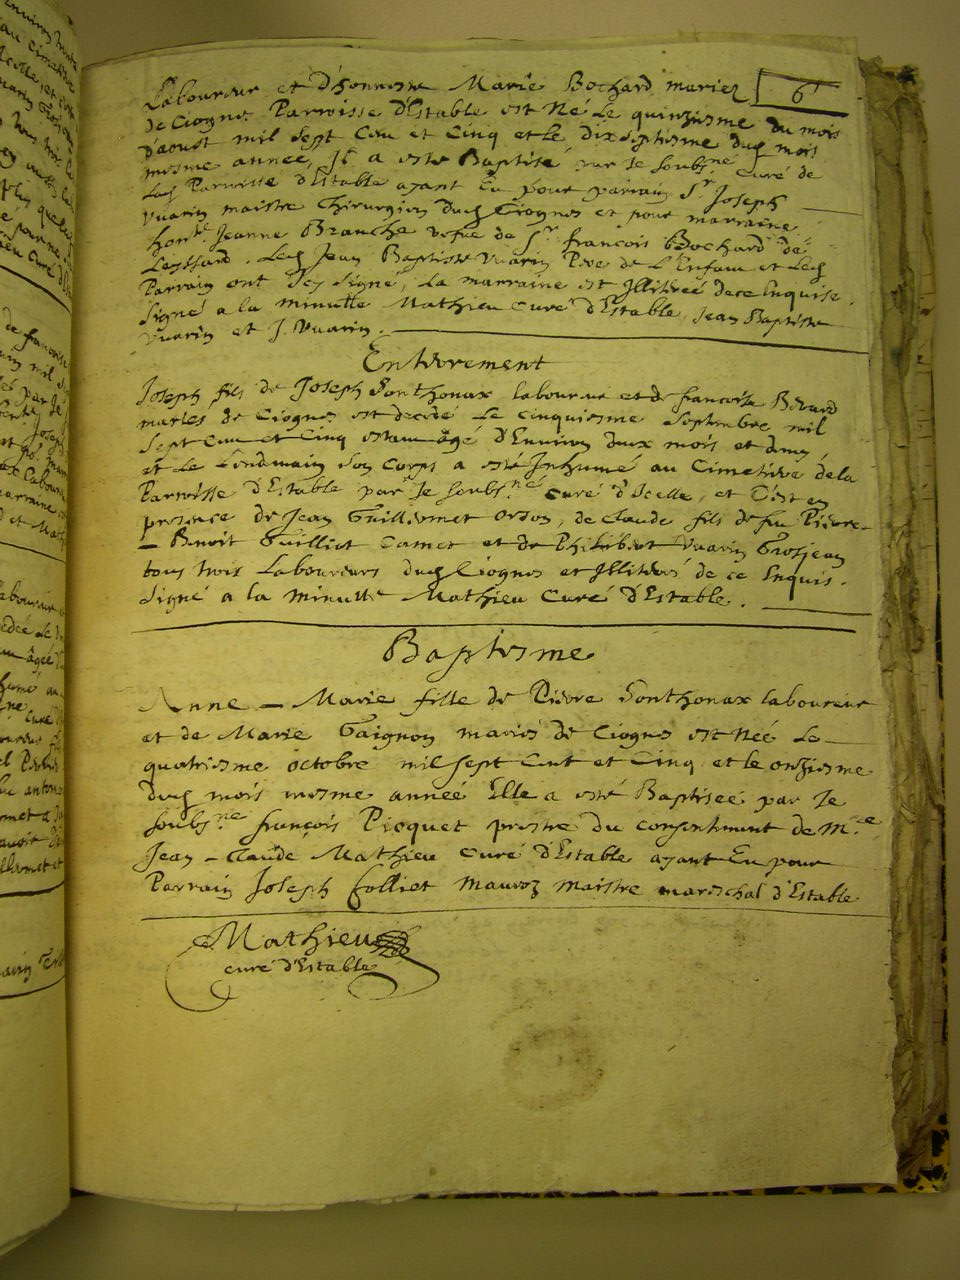 6
Laboureur et D'honneste Marie Bochard mariez
de Ciognes Parroisse d'Estable est Né Le quinziesme du mois
d'aoust mil sept Cen et Cinq et le dixseptiesme dud mois
mesme année, Il a esté Baptisé par Je Soubs.né Curé de
Lad Parroisse d'Estable ayant Eu pour parrain Sr. Joseph
Vuarin maistre Chirurgien dud Ciognes et pour marraine
hon.te Jeanne Branche vefue de Sr. francois Bochard de
Leyssard. Led Jean Baptiste Vuarin Pere de L'Enfant et Led
Parrain ont Icy signé, La marraine est Illiterée de ce Enquise.
Signé a la minutte Mathieu Curé d'Estable, Jean Baptiste
Vuarin et J. Vuarin.
Enterrement
Joseph fils de Joseph Sonthonax laboureur et de francoise Berard
mariés de Ciognes est decedé Le cinquiesme Septembre mil
Sept Cen et Cinq estant âgé d'Environ deux mois et demy,
et Le Lendemain Son Corps a esté Inhumé au Cimetiere de la
Parroisse d'Estable par Je soubs.né curé d'Icelle, et C'est en
presence de Jean Guilliermet Orson, de Claude fils de feu Pierre
Benoit Guilliet Camet et de Philibert Vuarin Grosjean
tous trois Laboureurs dud Ciognes et Illiterés de ce Enquis.
Signé a la minutte Mathieu Curé d'Estable.
Baptesme
Anne-Marie fille de Pierre Sonthonax laboureur
et de Marie Gaignon mariés de Ciognes est Née Le
quatriesme octobre mil sept Cent et Cinq et le onziesme
dud mois mesme année Elle a esté Baptisée par Je
soubs.né françois Picquet prestre du consentiment de M.re
Jean-Claude Mathieu curé d'Estable ayant Eu pour
Parrain Joseph Colliet Mauroz maistre mareschal d'Estable
Mathieu
curé d'Estable